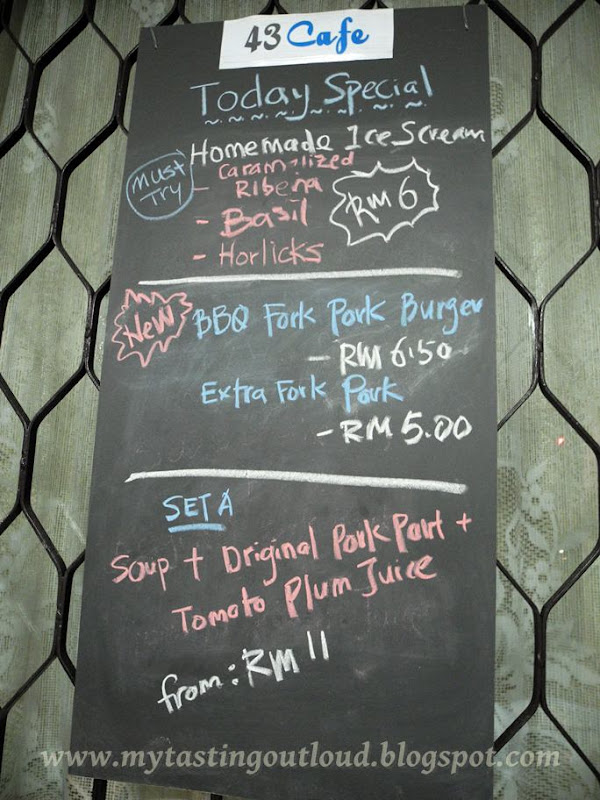 43 Cafe
Today Special
Homemade Ice Scream
Must Try
- Caramilized Ribena
RM 6
- Basil
- Horlicks
New
BBQ Fork Pork Burger
- RM 6.50
Extra Fork Pork
- RM 5.00
SET A
Soup + Original Pork Part +
Tomato Plum Juice
from: RM 11
www.mytastingoutloud.blogspot.com